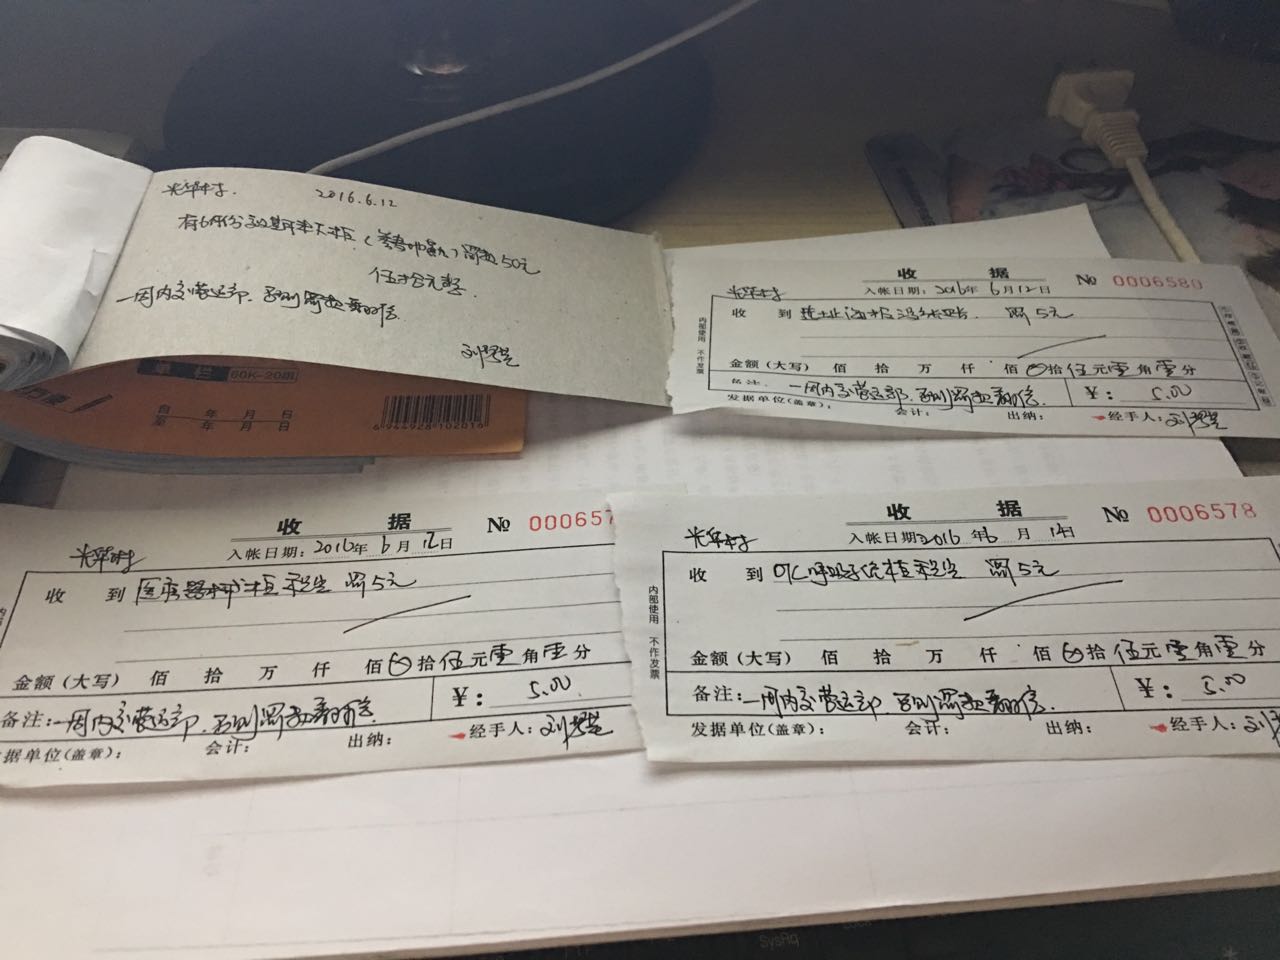 光华村 2016.6.12
有6月份 罚款50元
伍拾元整
一周内交营运部,否则罚款翻倍
单栏
60K-20
自 年 月 日
至 年 月 日
6 944928 102016
收 据 № 0006580
光华村 入帐日期:2016年6月12日
收 到 罚5元
金额(大写) 佰 拾 万 仟 佰 拾伍元零角零分
备注: 一周内交营运部,否则罚款翻倍 ¥: 5.00
发据单位(盖章): 会计: 出纳: 经手人:
内部使用 不作发票
收 据 № 000657
光华村 入帐日期:2016年6月12日
收 到 医疗器械柜 罚5元
金额(大写) 佰 拾 万 仟 佰 拾伍元零角零分
备注:一周内交营运部,否则罚款翻倍 ¥: 5.00
发据单位(盖章): 会计: 出纳: 经手人:
收 据 № 0006578
光华村 入帐日期:2016年6月12日
收 到 OTC呼吸系统柜 罚5元
内部使用 不作发票
金额(大写) 佰 拾 万 仟 佰 拾伍元零角零分
备注:一周内交营运部,否则罚款翻倍 ¥: 5.00
发据单位(盖章): 会计: 出纳: 经手人:
SysRq